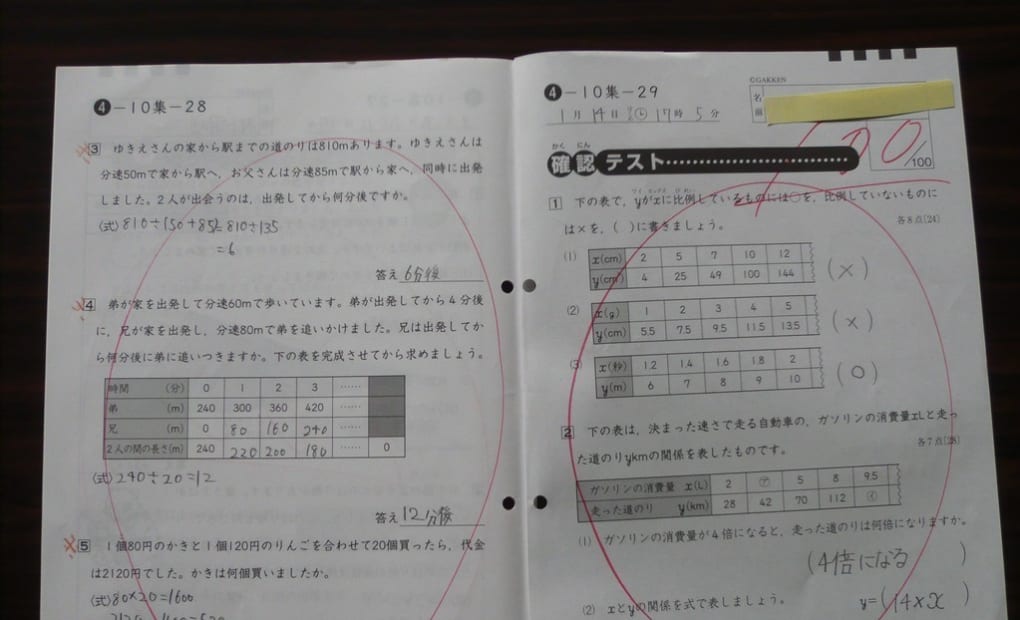 4-10集-28
3 ゆきえさんの家から駅までの道のりは810mあります。ゆきえさんは
分速50mで家から駅へ，お父さんは分速85mで駅から家へ，同時に出発
しました。2人が出会うのは，出発してから何分後ですか。
(式)810÷(50+85)=810÷135
=6
答え 6分後
4 弟が家を出発して分速60mで歩いています。弟が出発してから4分後
に，兄が家を出発し，分速80mで弟を追いかけました。兄は出発してか
ら何分後に弟に追いつきますか。下の表を完成させてから求めましょう。
時間 (分) 0 1 2 3 ……
弟 (m) 240 300 360 420 ……
兄 (m) 0 80 160 240 ……
2人の間の長さ(m) 240 220 200 180 …… 0
(式)240÷20=12
答え 12分後
5 1個80円のかきと1個120円のりんごを合わせて20個買ったら，代金
は2120円でした。かきは何個買いましたか。
(式)80×20=1600
4-10集-29
©GAKKEN
名前
1月14日 17時5分
100/100
かく にん
確認テスト
1 下の表で，yがxに比例しているものには○を，比例していないものに
は×を，( )に書きましょう。
各8点[24]
(1) x(cm) 2 5 7 10 12
y(cm) 4 25 49 100 144
(×)
(2) x(g) 1 2 3 4 5
y(cm) 5.5 7.5 9.5 11.5 13.5
(×)
(3) x(秒) 1.2 1.4 1.6 1.8 2
y(m) 6 7 8 9 10
(○)
2 下の表は，決まった速さで走る自動車の，ガソリンの消費量xLと走っ
た道のりykmの関係を表したものです。
各7点[28]
ガソリンの消費量 x(L) 2 ㋐ 5 8 9.5
走った道のり y(km) 28 42 70 112 ㋑
(1) ガソリンの消費量が4倍になると，走った道のりは何倍になりますか。
(4倍になる)
(2) xとyの関係を式で表しましょう。
y=(14×x)